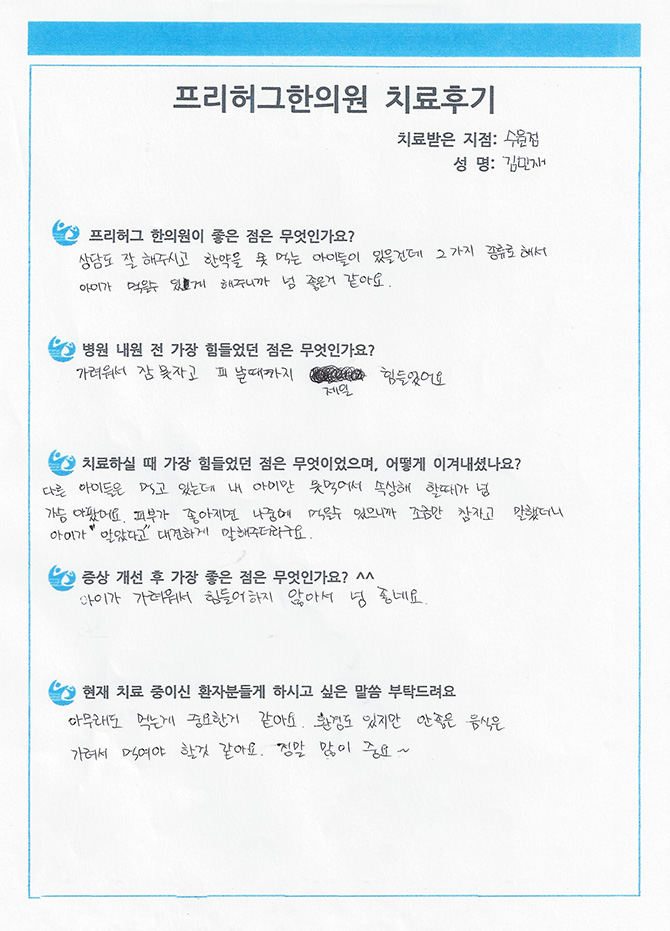 프리허그한의원 치료후기
치료받은 지점: 수원점
성 명: 김민재
프리허그 한의원이 좋은 점은 무엇인가요?
상담도 잘 해주시고 한약을 못 먹는 아이들이 있을건데 2가지 종류로 해서
아이가 먹을수 있게 해주니까 넘 좋은거 같아요.
병원 내원 전 가장 힘들었던 점은 무엇인가요?
가려워서 잠 못자고 피 날때까지 제일 힘들었어요
치료하실 때 가장 힘들었던 점은 무엇이었으며, 어떻게 이겨내셨나요?
다른 아이들은 먹고 있는데 내 아이만 못먹어서 속상해 할때가 넘
가슴 아팠어요. 피부가 좋아지면 나중에 먹을수 있으니까 조금만 참자고 말했더니
아이가 "알았다고" 대견하게 말해주더라구요.
증상 개선 후 가장 좋은 점은 무엇인가요? ^^
아이가 가려워서 힘들어하지 않아서 넘 좋네요.
현재 치료 중이신 환자분들게 하시고 싶은 말씀 부탁드려요
아무래도 먹는게 중요한거 같아요. 환경도 있지만 안좋은 음식은
가려서 먹여야 할것 같아요. 정말 많이 중요~